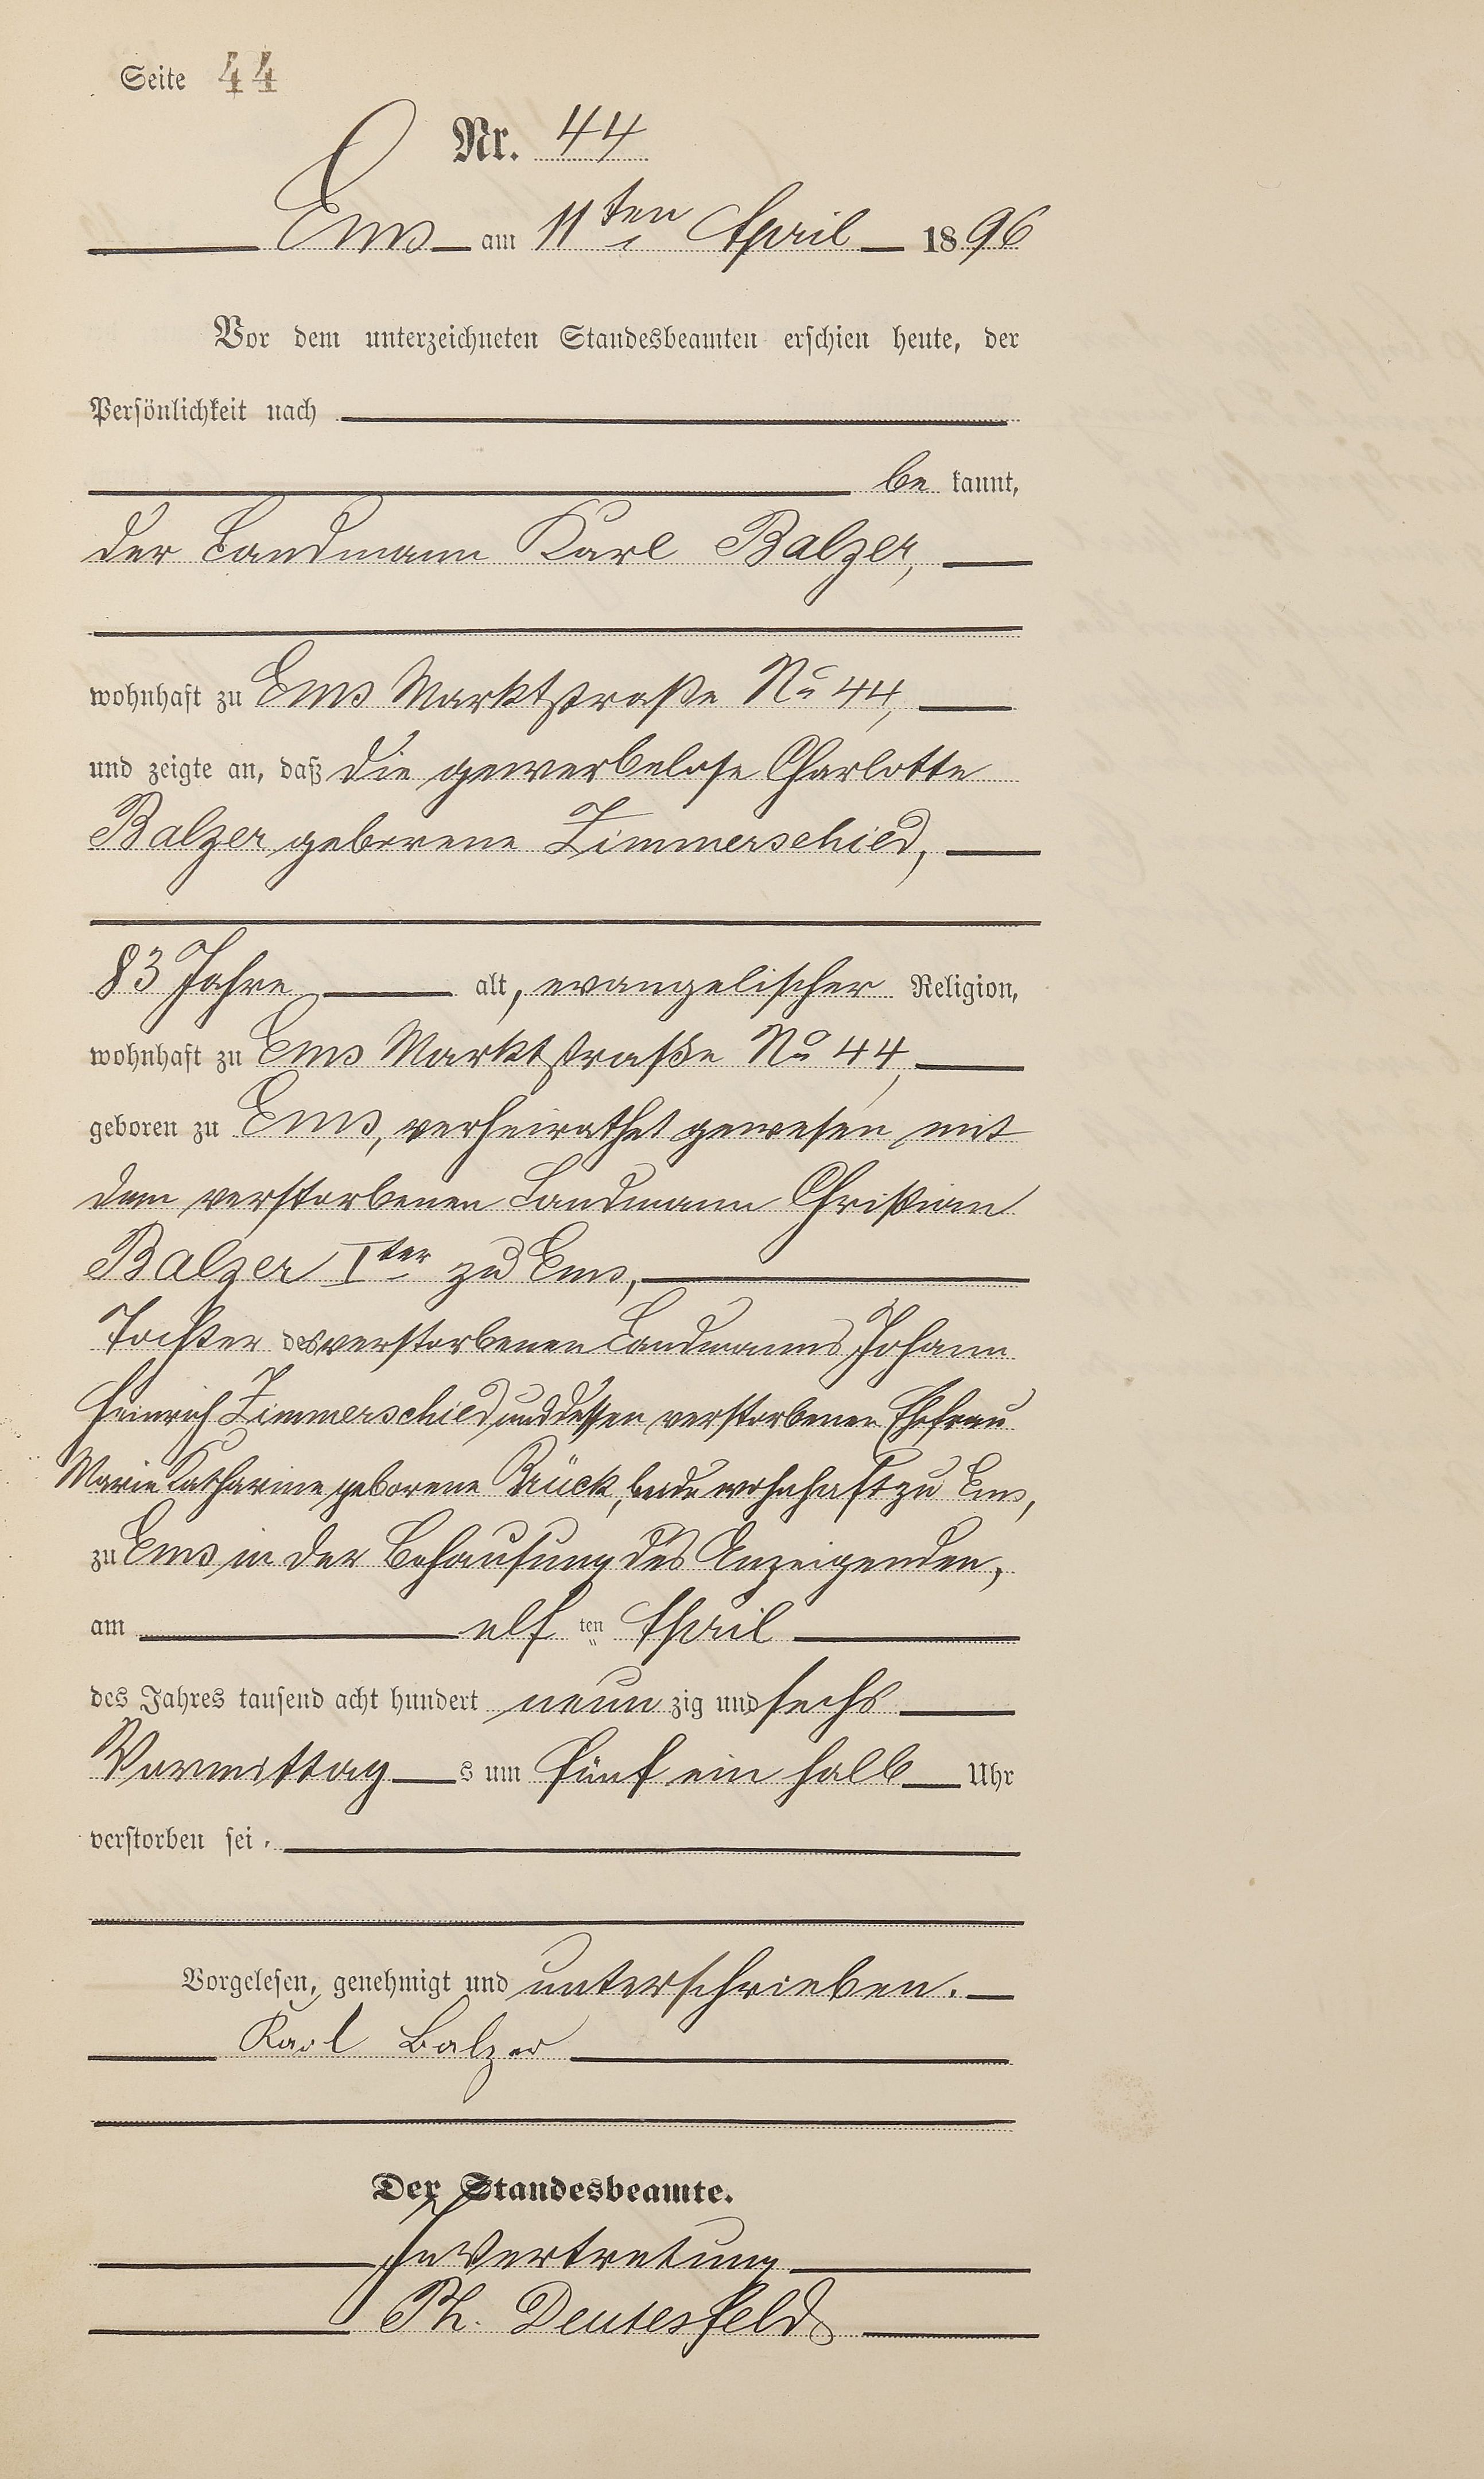 Seite 44
Nr. 44
Ems am 11ten April 1896
Vor dem unterzeichneten Standesbeamten erschien heute, der
Persönlichkeit nach
be kannt,
der Landmann Karl Balzer,
wohnhaft zu Ems Marktstraße No 44,
und zeigte an, daß die gewerbelose Charlotte
Balzer geborene Zimmerschied,
83 Jahre alt, evangelischer Religion,
wohnhaft zu Ems Marktstraße No 44,
geboren zu Ems, verheirathet gewesen mit
dem verstorbenen Landmann Christian
Balzer Iter zu Ems,
Tochter des verstorbenen Landmanns Johann
Heinrich Zimmerschied und dessen verstorbener Ehefrau
Marie Katharine geborene Brück, beide wohnhaft zu Ems,
zu Ems in der Behausung des Anzeigenden,
am elf ten April
des Jahres tausend acht hundert neun zig und sechs
Vormittag s um fünf ein halb Uhr
verstorben sei.
Vorgelesen, genehmigt und unterschrieben.
Karl Balzer
Der Standesbeamte.
In Vertretung
Ph. Deutesfeld